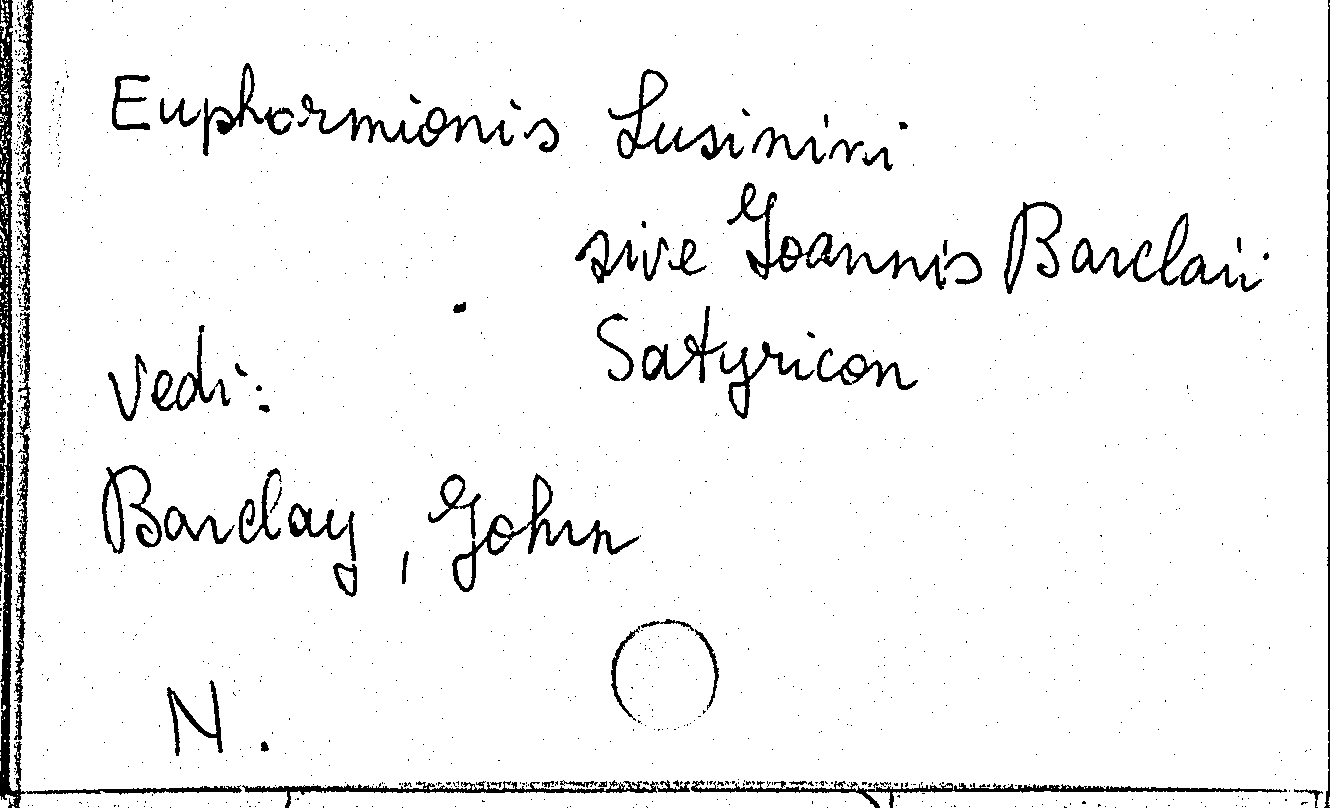 Euphormionis Lusinini
sive Joannis Barclaii
Satyricon
Vedi:
Barclay, John
N.